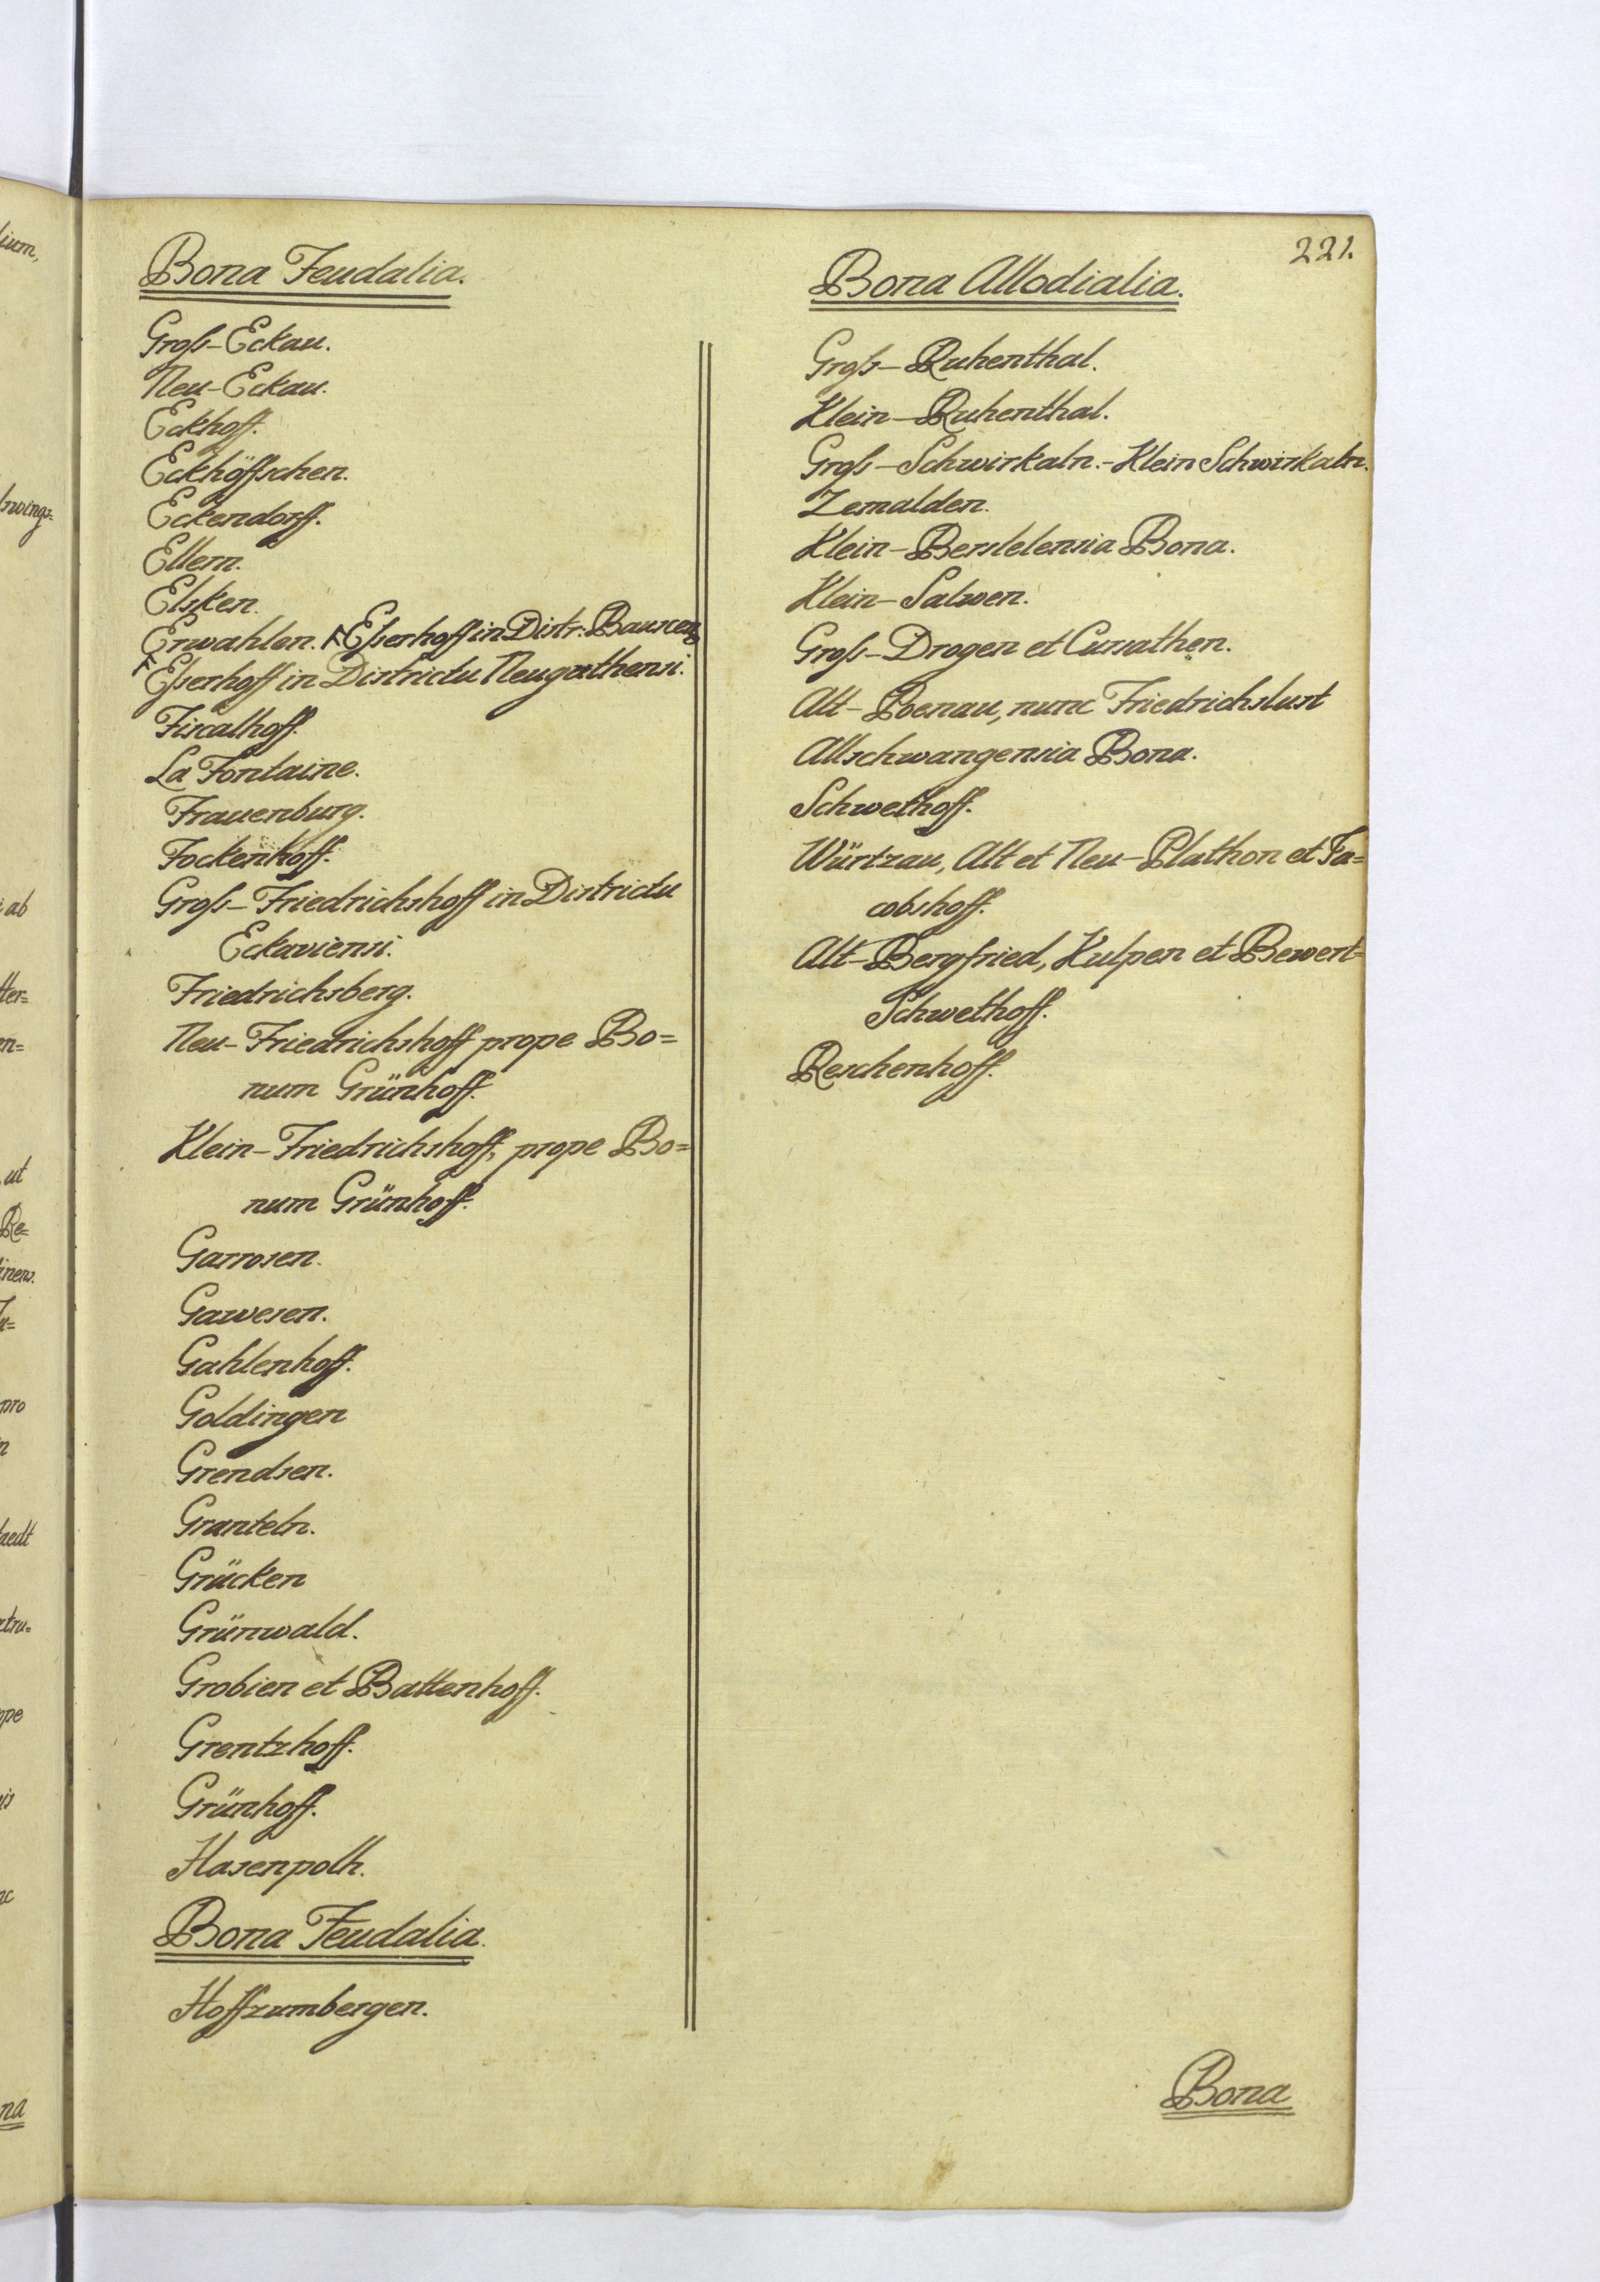 221.
Bona Feudalia.
Groß-Eckau.
Neu-Eckau.
Eckhoff.
Eckhöffschen.
Eckendorff.
Ellern.
Elsken.
Erwahlen. Eßerhoff in Distr: Bauscens
Eßerhoff in Districtu Neuguthensi.
Fiscalhoff.
La Fontaine.
Frauenburg.
Fockenhoff.
Groß-Friedrichshoff in Districtu
Eckaviensi.
Friedrichsberg.
Neu-Friedrichshoff prope Bo=
num Grünhoff.
Klein-Friedrichshoff, prope Bo=
num Grünhoff.
Garrosen.
Gawesen.
Gahlenhoff.
Goldingen
Grendsen.
Granteln.
Grücken
Grünwald.
Grobien et Battenhoff.
Grentzhoff.
Grünhoff.
Hasenpoth.
Bona Feudalia.
Hoffzumbergen.
Bona Allodialia.
Groß-Ruhenthal.
Klein-Ruhenthal.
Groß-Schwirkaln.-Klein Schwirkaln.
Zemalden.
Klein-Berstelensia Bona.
Klein-Salwen.
Groß-Drogen et Cursathen.
Alt-Poenau, nunc Friedrichslust
Allschwangensia Bona.
Schwethoff.
Würtzau, Alt et Neu-Plathon et Ja=
cobshoff.
Alt-Bergfried, Kulpen et Bewert=
Schwethoff.
Reschenhoff.
Bona
ium,
i ab
tter=
en=
ut
Re=
pro
ope
nc
na